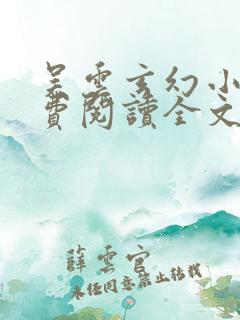 吴云玄幻小
费阅读全文
薛云官
未经同意禁止转载